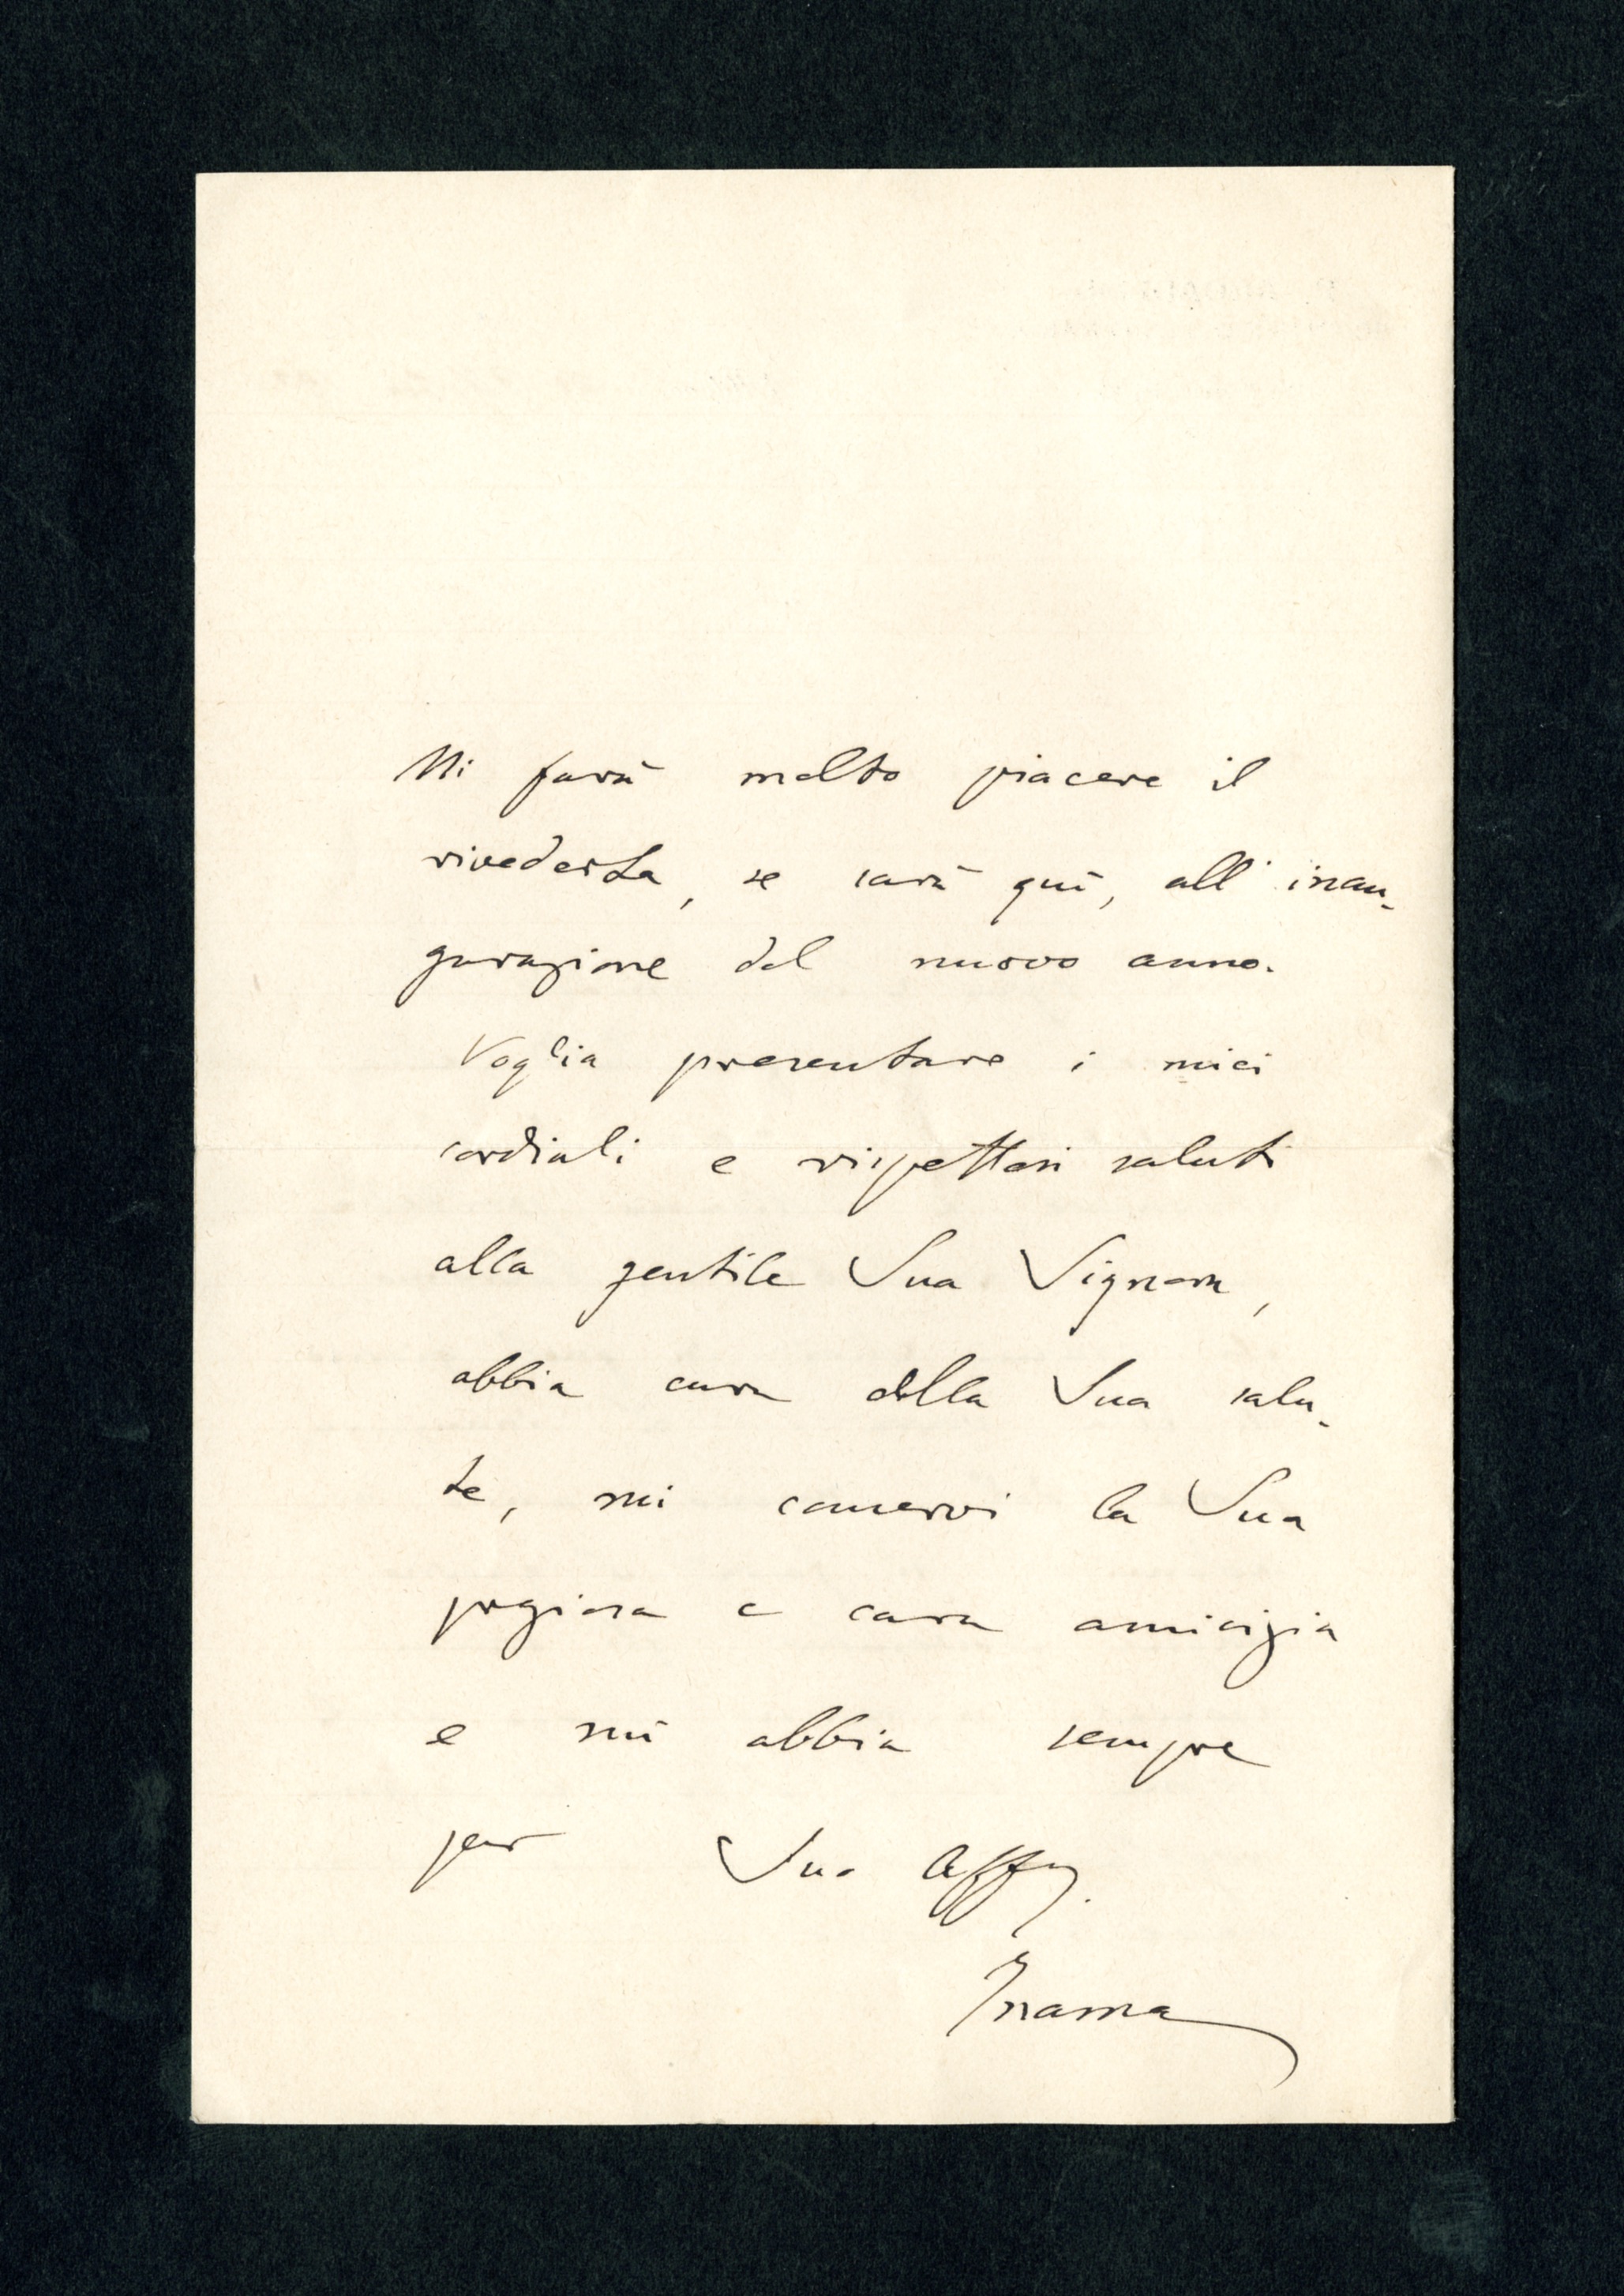 Mi farà molto piacere il
rivederLa, se sarà quì, all'inau-
gurazione del nuovo anno.
Voglia presentare i miei
cordiali e rispettosi saluti
alla gentile Sua Signora,
abbia cura della Sua salu-
te, mi conservi la Sua
pregiosa e cara amicizia
e mi abbia sempre
per Suo Affº.
Inama